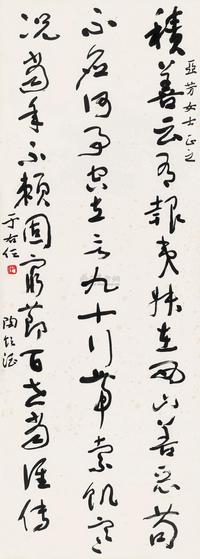 亞芳女士正之
積善云有報夷叔在西山善惡苟
不應何事空立言九十行帶索飢寒
況當年不賴固窮節百世當誰傳
陶飲酒
于右任